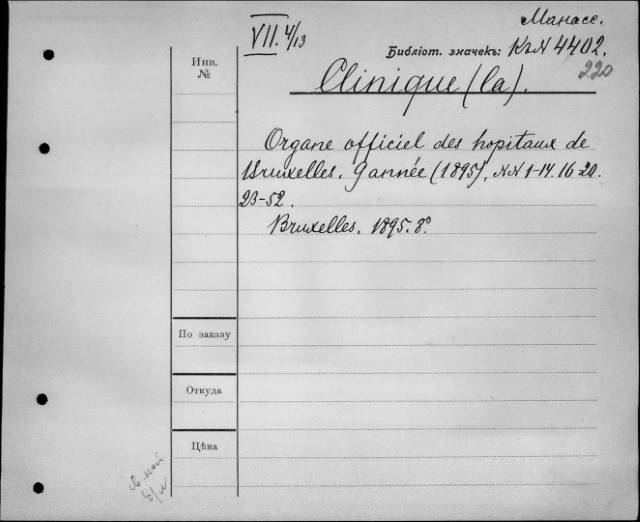 Манасс.
VII. 4/13
Библіот. значекъ: КкN 4402.
220
Инв.
№
Clinique (la).
Organe officiel des hopitaux de
Bruxelles. 9 année (1895), NN 1-14. 16-20.
23-52.
Bruxelles. 1895. 8°
По заказу
Откуда
Цѣна